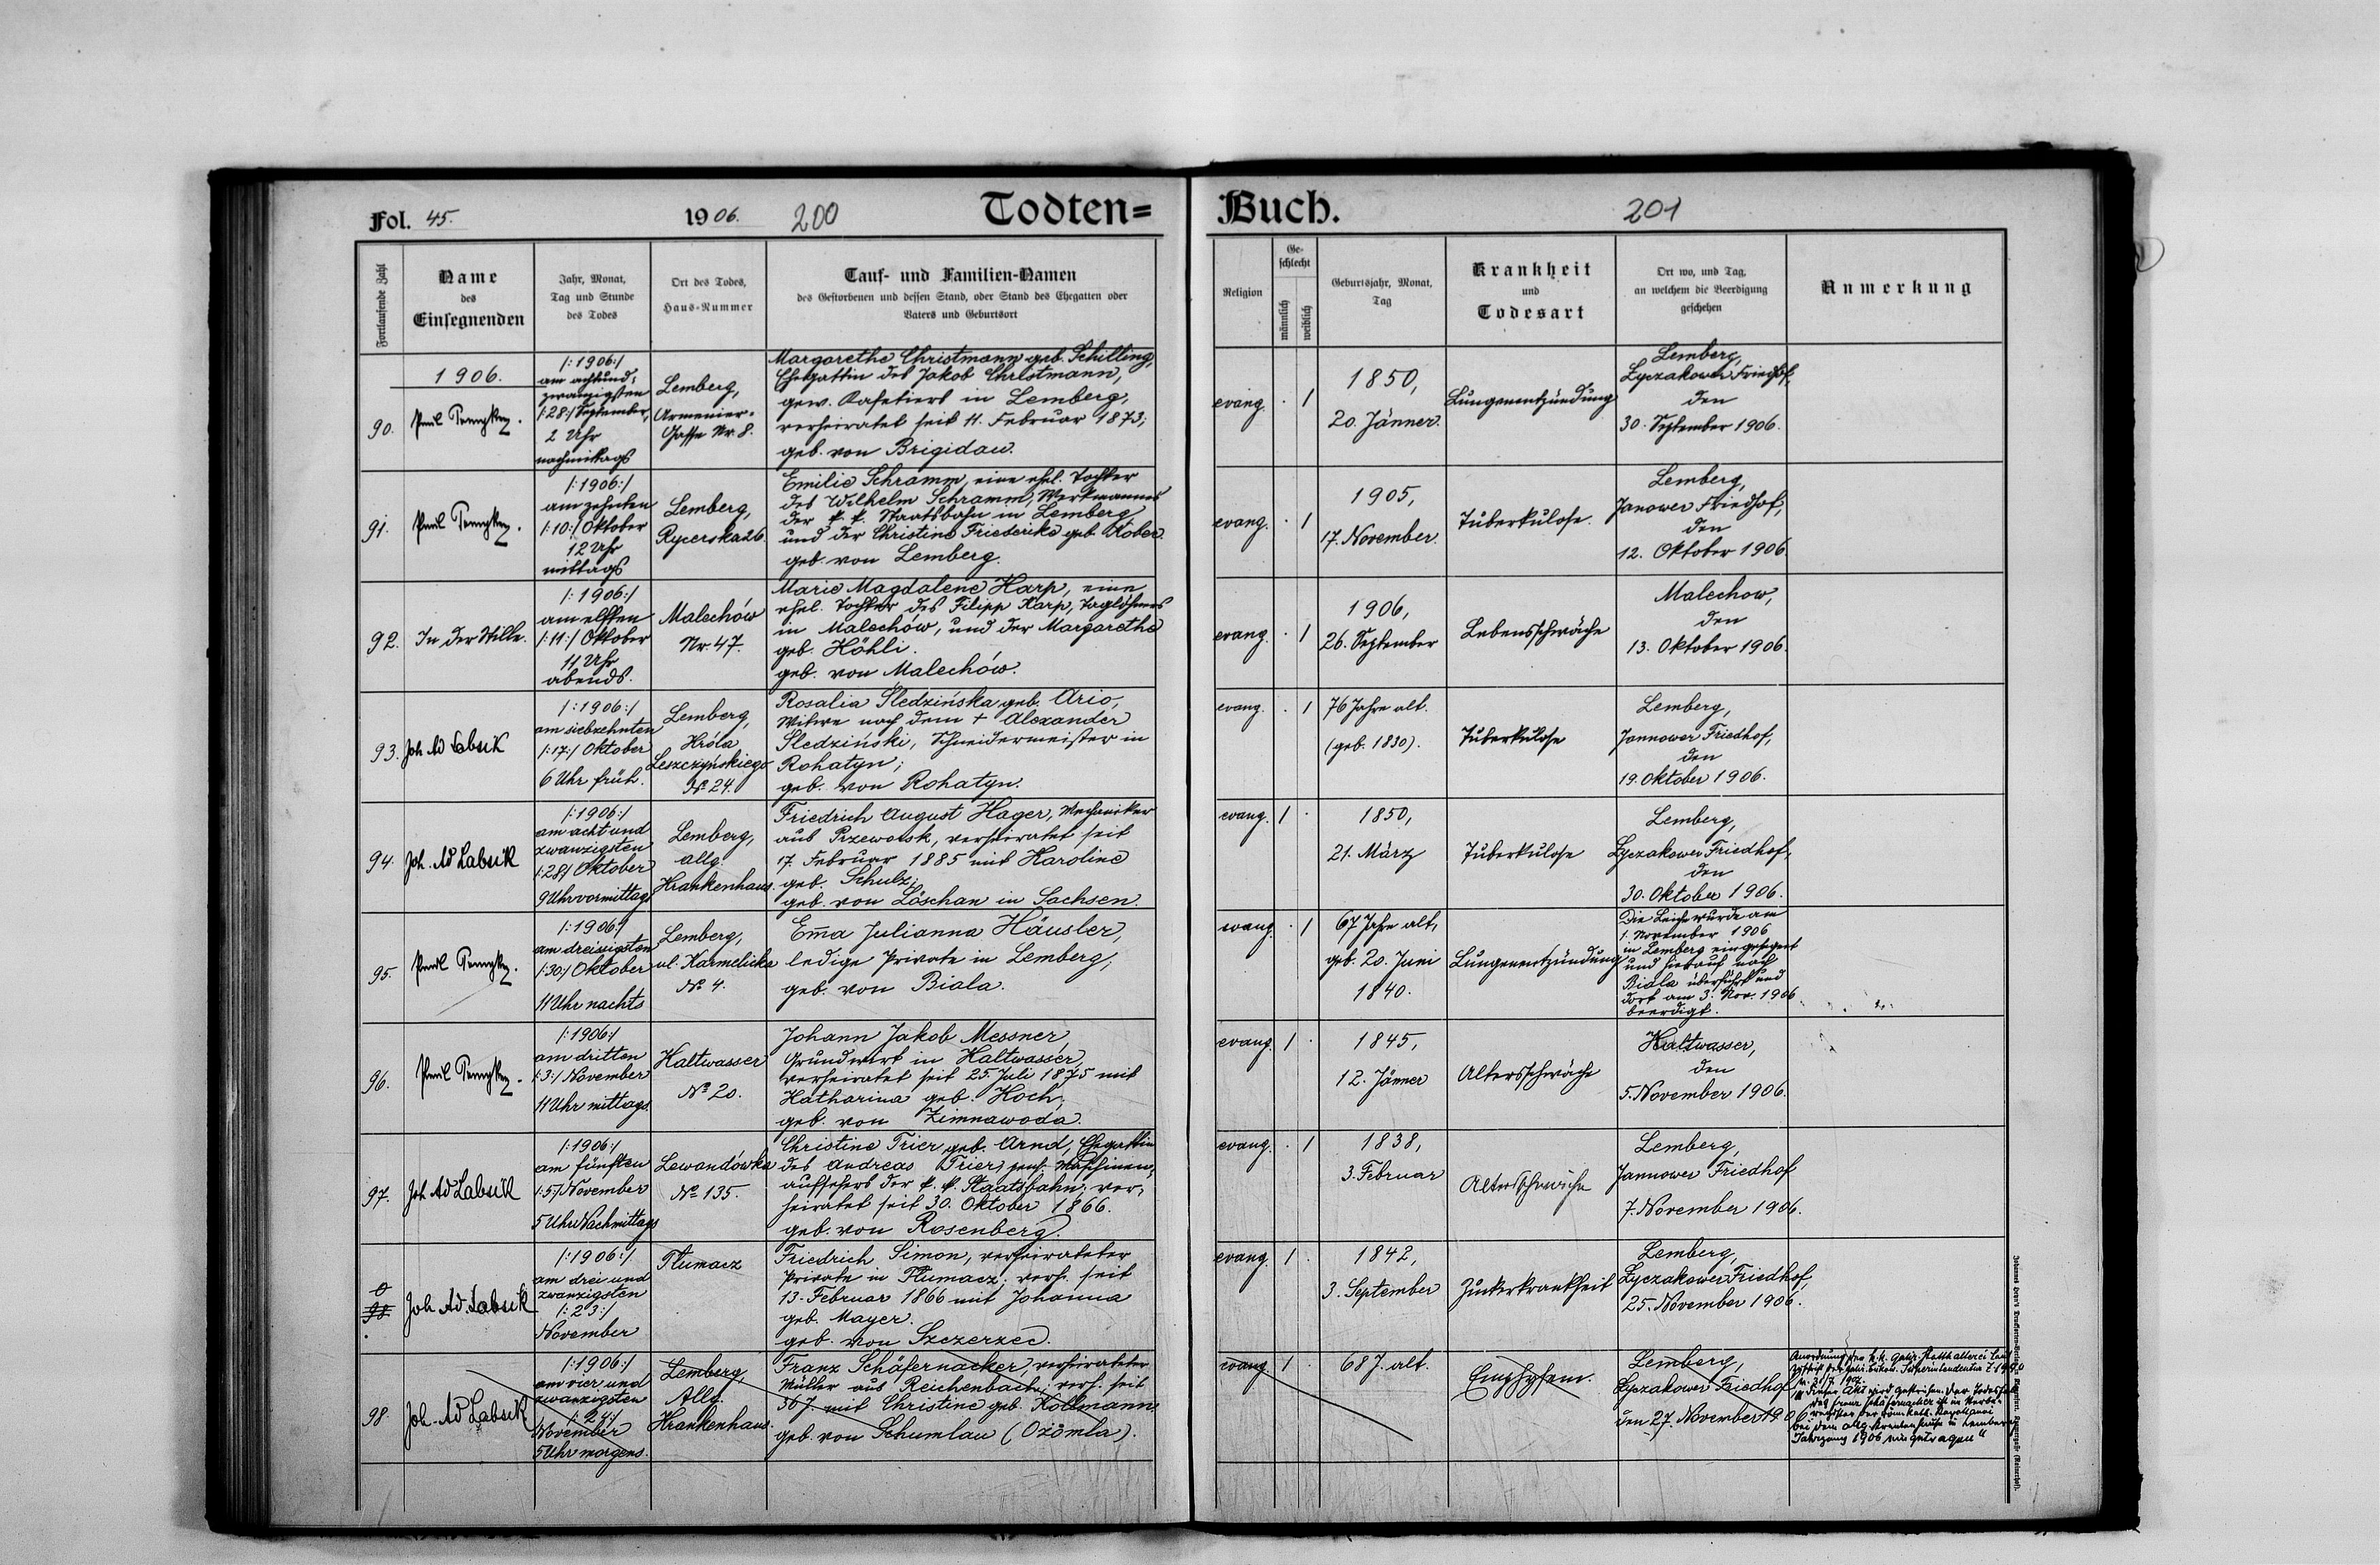 Fol. 45.
1906.
200
Todten=
Buch.
201
Fortlaufende Zahl
Name
des
Einsegnenden
Jahr, Monat,
Tag und Stunde
des Todes
Ort des Todes,
Haus-Nummer
Tauf- und Familien-Namen
des Gestorbenen und dessen Stand, oder Stand des Ehegatten oder
Vaters und Geburtsort
Religion
Ge-
schlecht
männlich
weiblich
Geburtsjahr, Monat,
Tag
Krankheit
und
Todesart
Ort wo, und Tag,
an welchem die Beerdigung
geschehen
Anmerkung
1906.
90.
/:1906:/
am achtund-
zwanzigsten
/:28:/ September,
2 Uhr
nachmittags
Lemberg,
Armenier-
Gasse Nr. 8.
Margarethe Christmann geb. Schilling,
Ehegattin des Jakob Christmann,
gew. Kafetiers in Lemberg,
verheiratet seit 11. Februar 1873;
geb. von Brigidau.
evang.
. 1
1850,
20. Jänner.
Lungenentzündung
Lemberg,
Lyczakower Friedhof,
den
30. September 1906.
91.
/:1906:/
am zehnten
/:10:/ Oktober
12 Uhr
mittags
Lemberg,
Rycerska 26.
Emilie Schramm, eine ehel. Tochter
des Wilhelm Schramm, Werkmannes
der k. k. Staatsbahn in Lemberg
und der Christine Friederike geb. Kober.
geb. von Lemberg.
evang.
. 1
1905,
17. November.
Tuberkulose.
Lemberg,
Janower Friedhof,
den
12. Oktober 1906
92.
In der Stille.
/:1906:/
am elften
/:11:/ Oktober
11 Uhr
abends.
Malechów
Nr. 47.
Marie Magdalene Harp, eine
ehel. Tochter des Filipp Karp, Taglöhners
in Malechów, und der Margarethe
geb. Höhli.
geb. von Malechów.
evang.
. 1
1906,
26. September
Lebensschwäche
Malechow,
den
13. Oktober 1906.
93.
Joh. Ad Labsik
/:1906:/
am siebzehnten
/:17:/ Oktober
6 Uhr früh.
Lemberg,
Króla
Leszczyńskiego
№ 24.
Rosalia Śledzińska geb. Ario,
Witwe nach dem + Alexander
Śledziński, Schneidermeister in
Rohatyn;
geb. von Rohatyn.
evang.
. 1
76 Jahre alt.
(geb. 1830).
Tuberkulose
Lemberg,
Jannower Friedhof,
den
19. Oktober 1906.
94.
Joh. Ad Labsik
/:1906:/
am acht und
zwanzigsten
/:28/ Oktober
9 Uhr vormittags
Lemberg,
allg.
Krankenhaus.
Friedrich August Hager, Mechaniker
aus Przeworsk, verheiratet seit
17. Februar 1885 mit Karoline
geb. Schulz;
geb. von Löschan in Sachsen.
evang.
1 .
1850,
21. März
Tuberkulose
Lemberg,
Lyczakower Friedhof,
den
30. Oktober 1906.
95.
/:1906:/
am dreissigsten
/:30:/ Oktober
11 Uhr nachts
Lemberg,
ul. Karmelicka
№ 4.
Em̄a Julianna Häusler,
ledige Private in Lemberg;
geb. von Biala.
evang.
. 1
67 Jahre alt,
geb. 20. Juni
1840.
Lungenentzündung
Die Leiche wurde am
1. November 1906
in Lemberg eingesegnet
und hierauf nach
Biala überführt und
dort am 3. Nov. 1906
beerdigt.
96.
/:1906:/
am dritten
/:3:/ November
11 Uhr mittags.
Kaltwasser
№ 20.
Johann Jakob Messner,
Grundwirt in Kaltwasser,
verheiratet seit 25. Juli 1875 mit
Katharina geb. Koch;
geb. von Zimnawoda.
evang.
1 .
1845,
12. Jänner
Altersschwäche
Kaltwasser,
den
5. November 1906.
97.
Joh. Ad Labsik
/:1906:/
am fünften
/:5:/ November
5 Uhr Nachmittags
Lewandówka
№ 135.
Christine Trier geb. Arnd, Ehegattin
des Andreas Trier, pens. Maschinen-
aufsehers der k. k. Staatsbahn; ver-
heiratet seit 30. Oktober 1866.
geb. von Rosenberg.
evang.
. 1
1838,
3. Februar
Altersschwäche
Lemberg,
Jannower Friedhof
7. November 1906.
0
98.
Joh. Ad. Labsik
/:1906:/
am drei und
zwanzigsten
/:23:/
November
Tlumacz
Friedrich Simon, verheirateter
Private in Tlumacz; verh. seit
13. Februar 1866 mit Johanna
geb. Mayer.
geb. von Szczerzec.
evang.
1 .
1842,
3. September
Zuckerkrankheit
Lemberg,
Lyczakower Friedhof,
25. November 1906.
98.
Joh. Ad Labsik
/:1906:/
am vier und
zwanzigsten
/:24:/
November
5 Uhr morgens.
Lemberg,
Allg.
Krankenhaus.
Franz Schäfernacker, verheirateter
Müller aus Reichenbach; verh. seit
36 J. mit Christine geb. Kollmann.
geb. von Schumlau (Ożomla).
evang.
1 .
68 J. alt.
Emphysem.
Lemberg,
Lyczakower Friedhof
den 27. November 1906
Anordnung der k. k. galiz. Statthalterei laut
dieser Akt wird gestrichen. Der Todesfall
des Franz Schäfernacker ist im Sterbe-
register der röm. kath.
bei dem allg. Krankenhause in Lemberg
Jahrgang 1906 eingetragen"